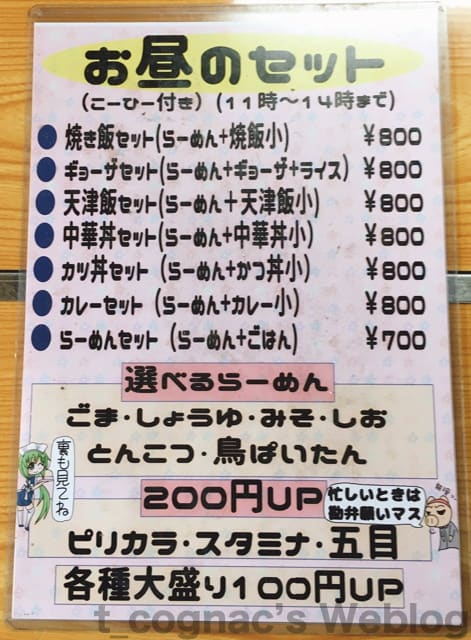 お昼のセット
(こーひー付き) (11時～14時まで)
焼き飯セット(らーめん+焼飯小) ¥800
ギョーザセット(らーめん+ギョーザ+ライス) ¥800
天津飯セット(らーめん+天津飯小) ¥800
中華丼セット(らーめん+中華丼小) ¥800
カツ丼セット (らーめん+かつ丼小) ¥800
カレーセット (らーめん+カレー小) ¥800
らーめんセット (らーめん+ごはん) ¥700
選べるらーめん
ごま・しょうゆ・みそ・しお
とんこつ・鳥ぱいたん
裏も見てね
200円UP
忙しいときは
勘弁願いマス
ピリカラ・スタミナ・五目
各種大盛り100円UP
t_cognac's Weblog